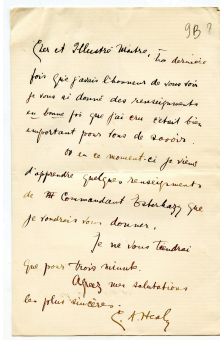 9B ?
Cher et Illustre Maitre, La dernière
fois que j'avais l'honneur de vous voir
je vous ai donné des renseignements
en bonne foi que j'ai cru était bien
important pour tous de savoir.
Or en ce moment-ci je viens
d'apprendre quelques renseignements
de Commandant Esterhazy que
je voudrais vous donner.
Je ne vous tiendrai
que pour trois minutes.
Agréez mes salutations
les plus sincères.
E. A. Healy